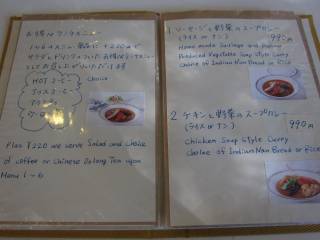 お得なランチメニュー
1〜6のメニュー単品に+220円で
サラダとドリンクのついた
お召し上がりいただけます
HOT コーヒー
アイスコーヒー
choice
Plus ¥220 we serve Salad and choice
of coffee or Chinese Oolong Tea upon
Menu 1~6
1 ソーセージと野菜のスープカレー
(ライス or ナン) 990円
Home made Sausage and
Produced Vegetable Soup Curry
choice of Indian Nan Bread or Rice
2 チキンと野菜のスープカレー
(ライス or ナン) 990円
Chicken Soup Style Curry
choice of Indian Nan Bread or Rice